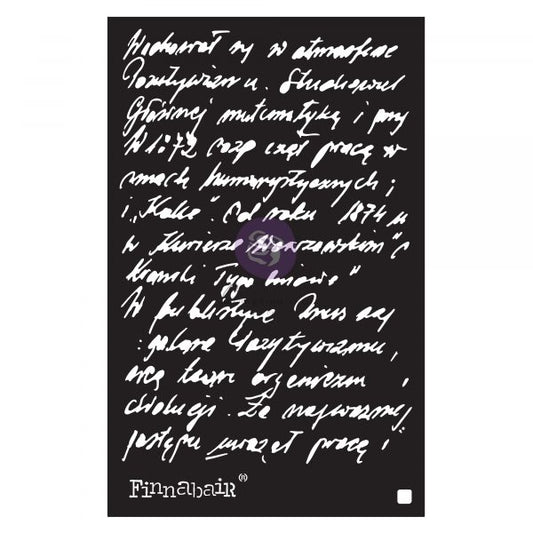 Wychował się w atmosferze
Pozytywizmu. Studiował
Głównej matematykę i przy
W 1872 rozpoczął pracę w
smach humorystycznych;
i „Kolce”. Od roku 1874 u
w Kurierze Warszawskim” c
Kronki Tygodniowe”
W publistyce Prus
pozytywizmu,
organizm i
ewolucji. Za najważniej
postępu uważał pracę i
Finnabair